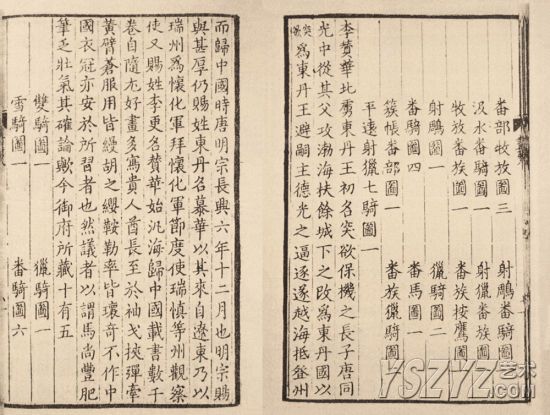 番部牧放圖三　射鵰番騎圖
汲水番騎圖一　射獵番族圖
牧放番族圖一　番族按鷹圖
射鵰圖一　獵騎圖二
番騎圖四　番馬圖一
簇帳番部圖一　番族獵騎圖
平遠射獵七騎圖一
李贊華北虜東丹王初名突欲保機之長子唐同
光中從其父攻渤海扶餘城下之改爲東丹國以
突欲爲東丹王避嗣主德光之逼遂越海抵登州
而歸中國時唐明宗長興六年十二月也明宗賜
與甚厚仍賜姓東丹名慕華以其來自遼東乃以
瑞州爲懷化軍拜懷化軍節度使瑞慎等州觀察
使又賜姓李更名贊華始汎海歸中國載書數千
卷自隨尤好畫多寫貴人酋長至於袖戈挾彈牽
黃臂蒼服用皆縵胡之纓鞍勒率皆瓌奇不作中
國衣冠亦安於所習者也然議者以謂馬尚豐肥
筆乏壯氣其確論歟今御府所藏十有五
雙騎圖一　獵騎圖一
雪騎圖一　番騎圖六
YSZYZ 艺术